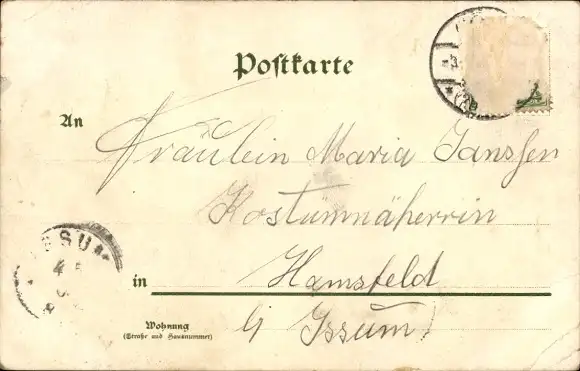 Postkarte
An
Fräulein Maria Janssen
Kostumnäherrin
in
Hamsfeld
Issum
Wohnung
(Straße und Hausnummer)
SSUM